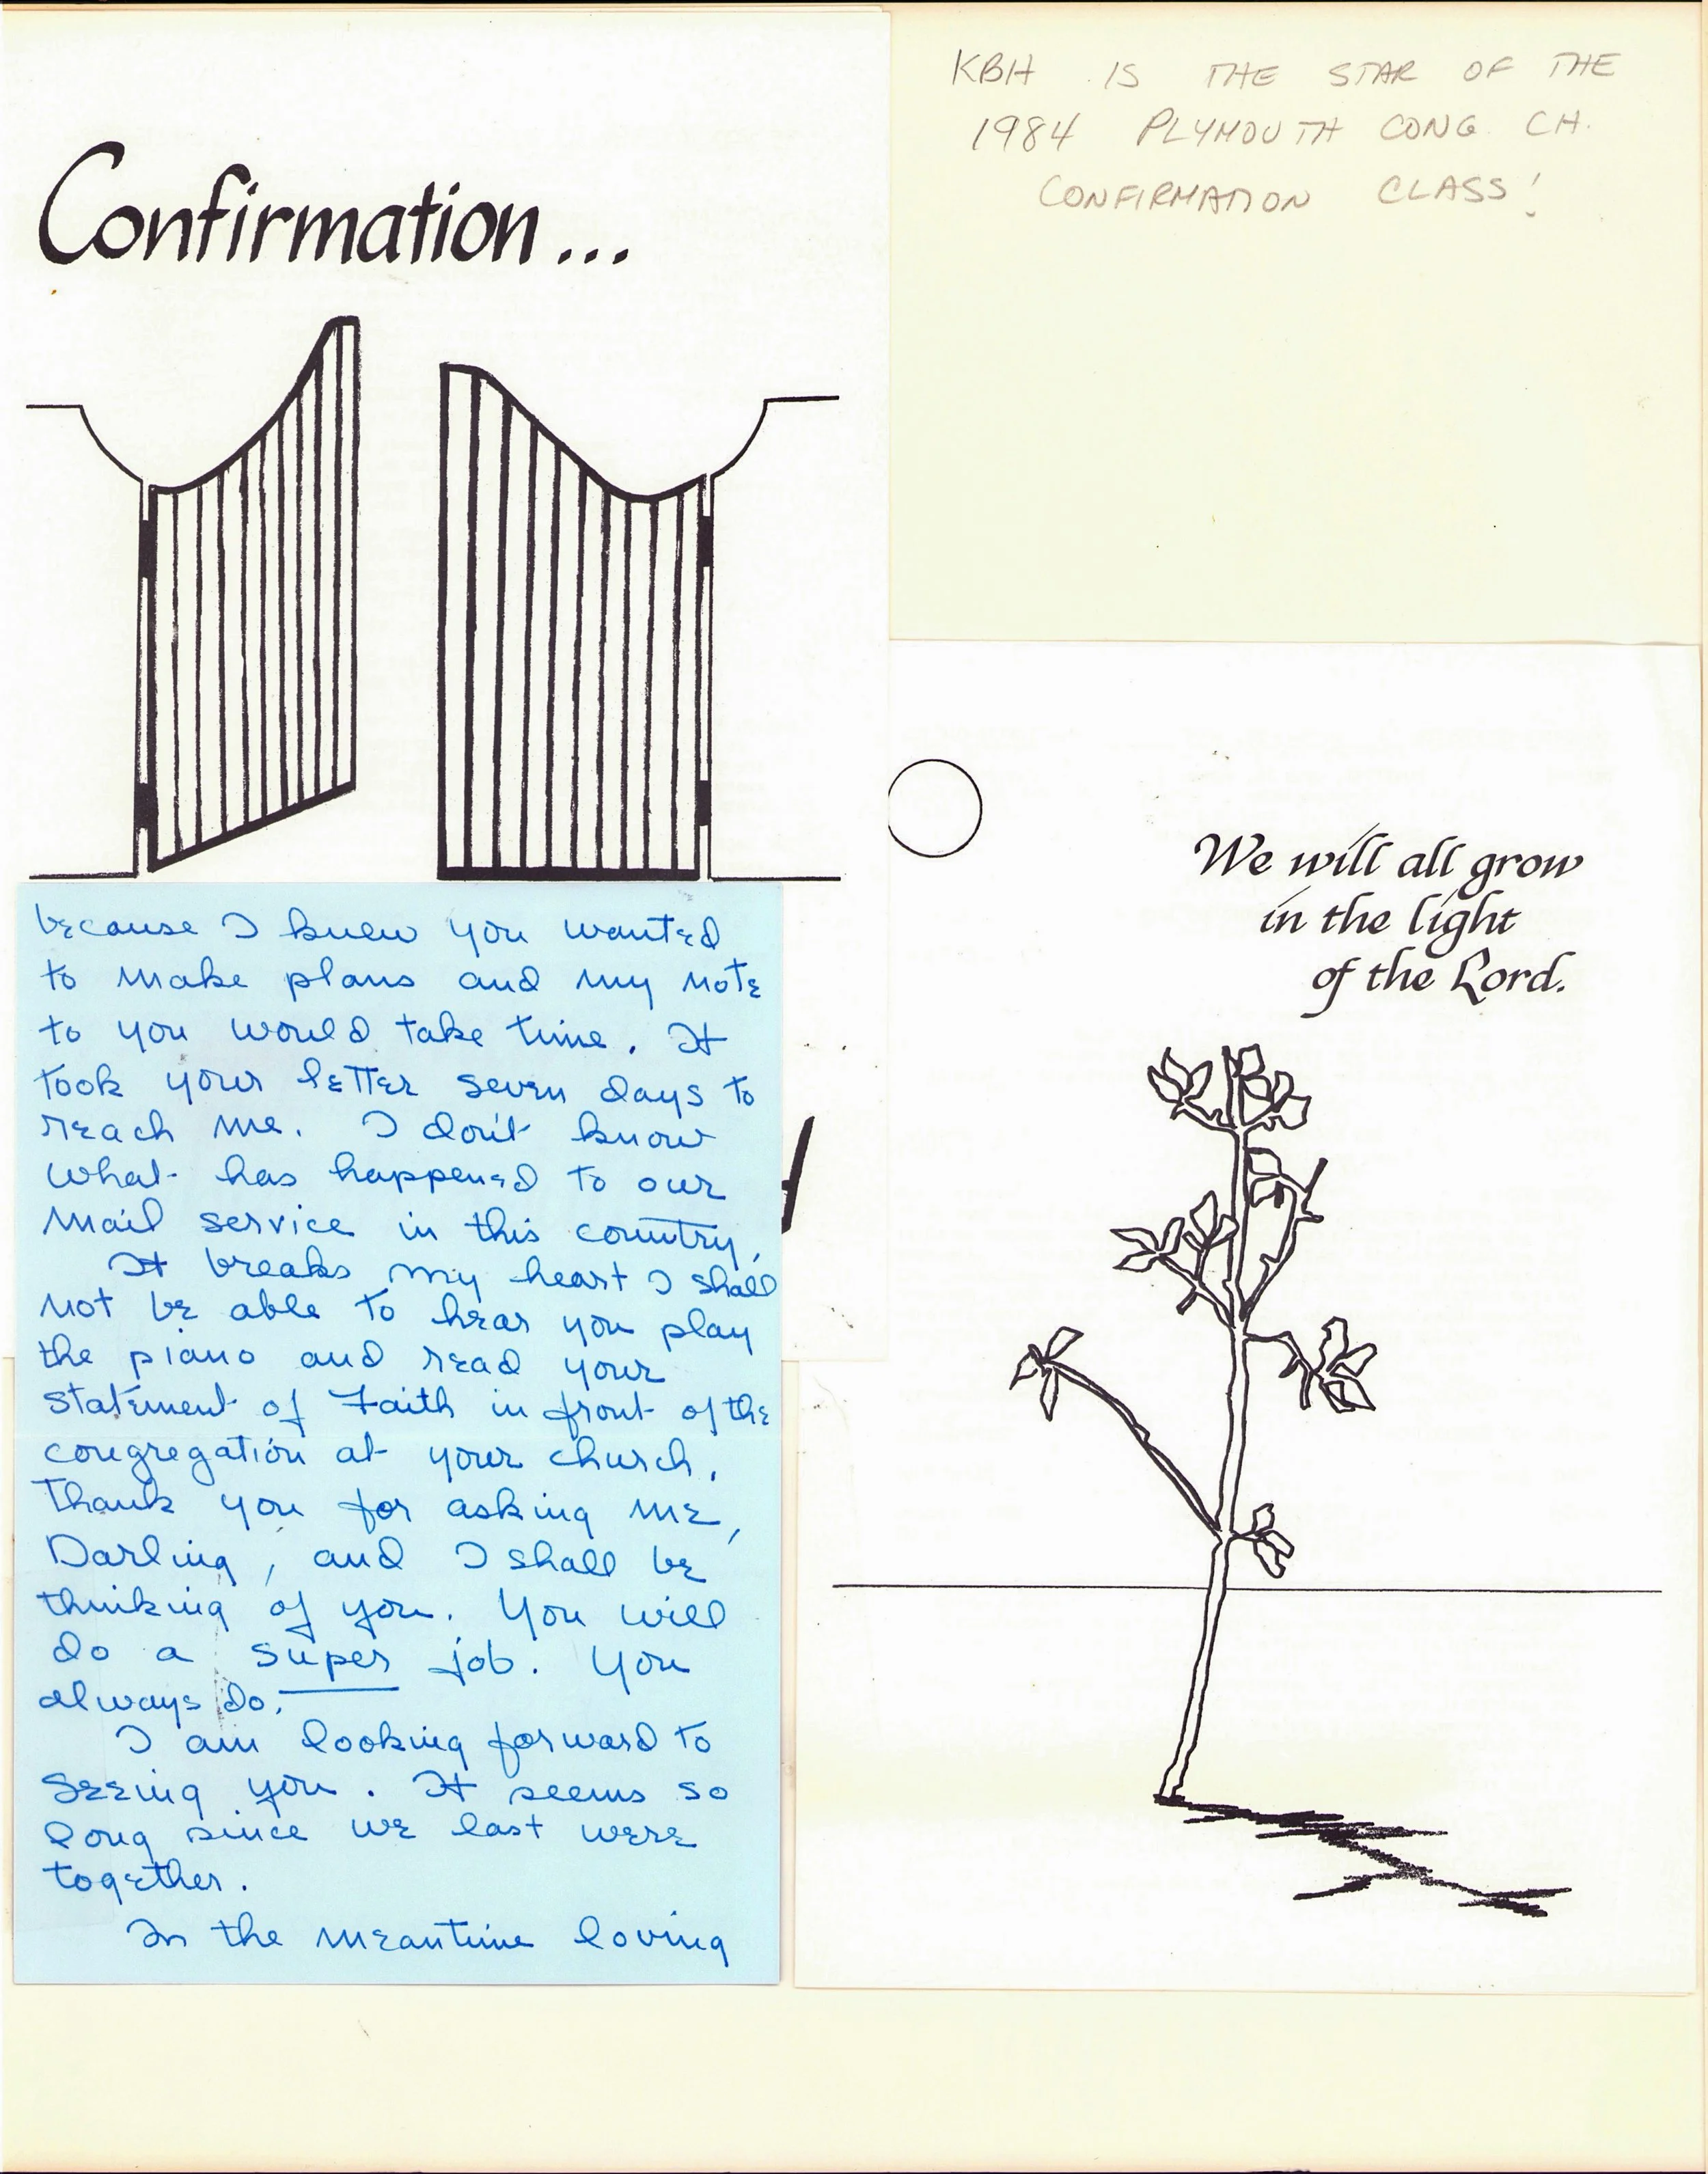 Confirmation...
KBH IS THE STAR OF THE
1984 PLYMOUTH CONG. CH.
CONFIRMATION CLASS!
We will all grow
in the light
of the Lord.
because I knew you wanted
to make plans and my note
to you would take time. It
took your letter seven days to
reach me. I don't know
what has happened to our
mail service in this country.
It breaks my heart I shall
not be able to hear you play
the piano and read your
Statement of Faith in front of the
congregation at your church.
Thank you for asking me,
Darling, and I shall be
thinking of you. You will
do a super job. You
always do.
I am looking forward to
seeing you. It seems so
long since we last were
together.
In the meantime loving